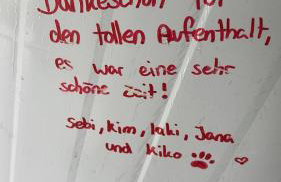 Dankeschön für
den tollen Aufenthalt,
es war eine sehr
schöne Zeit!
Sebi, Kim, Laki, Jana
und Kiko